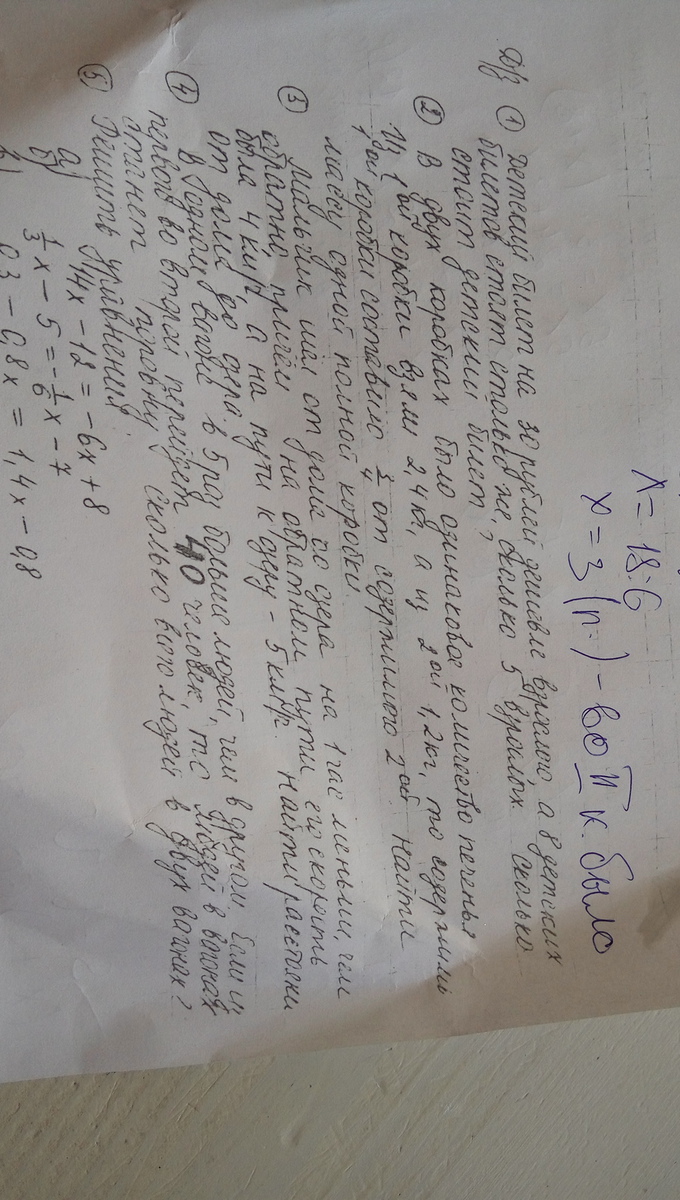 х = 18:6
х = 3 (п.) - во II к. было
Д/з ① Детский билет на 30 рублей дешевле взрослого, а 8 детских
билетов стоят столько же, сколько 5 взрослых. Сколько
стоит детский билет?
② В двух коробках было одинаковое количество печенья
Из 1ой коробки взяли 2,4кг, а из 2ой 1,2кг, то содержимое
1ой коробки составило 3/4 от содержимого 2ой. Найти
массу одной полной коробки.
③ Мальчик шёл от дома до озера на 1 час меньше, чем
обратно, причём на обратном пути его скорость
была 4 км/ч, а на пути к озеру - 5 км/ч. Найти расстояни
от дома до озера.
④ В одном вагоне в 5 раз больше людей, чем в другом. Если из
первого во второй перейдет 40 человек, то людей в вагонах
станет поровну. Сколько всего людей в двух вагонах?
⑤ Решить уравнения:
а) 14х - 12 = -6х + 8
б) 1/3 х - 5 = -1/6 х - 7
в) 0,3 - 0,8х = 1,4х - 0,8